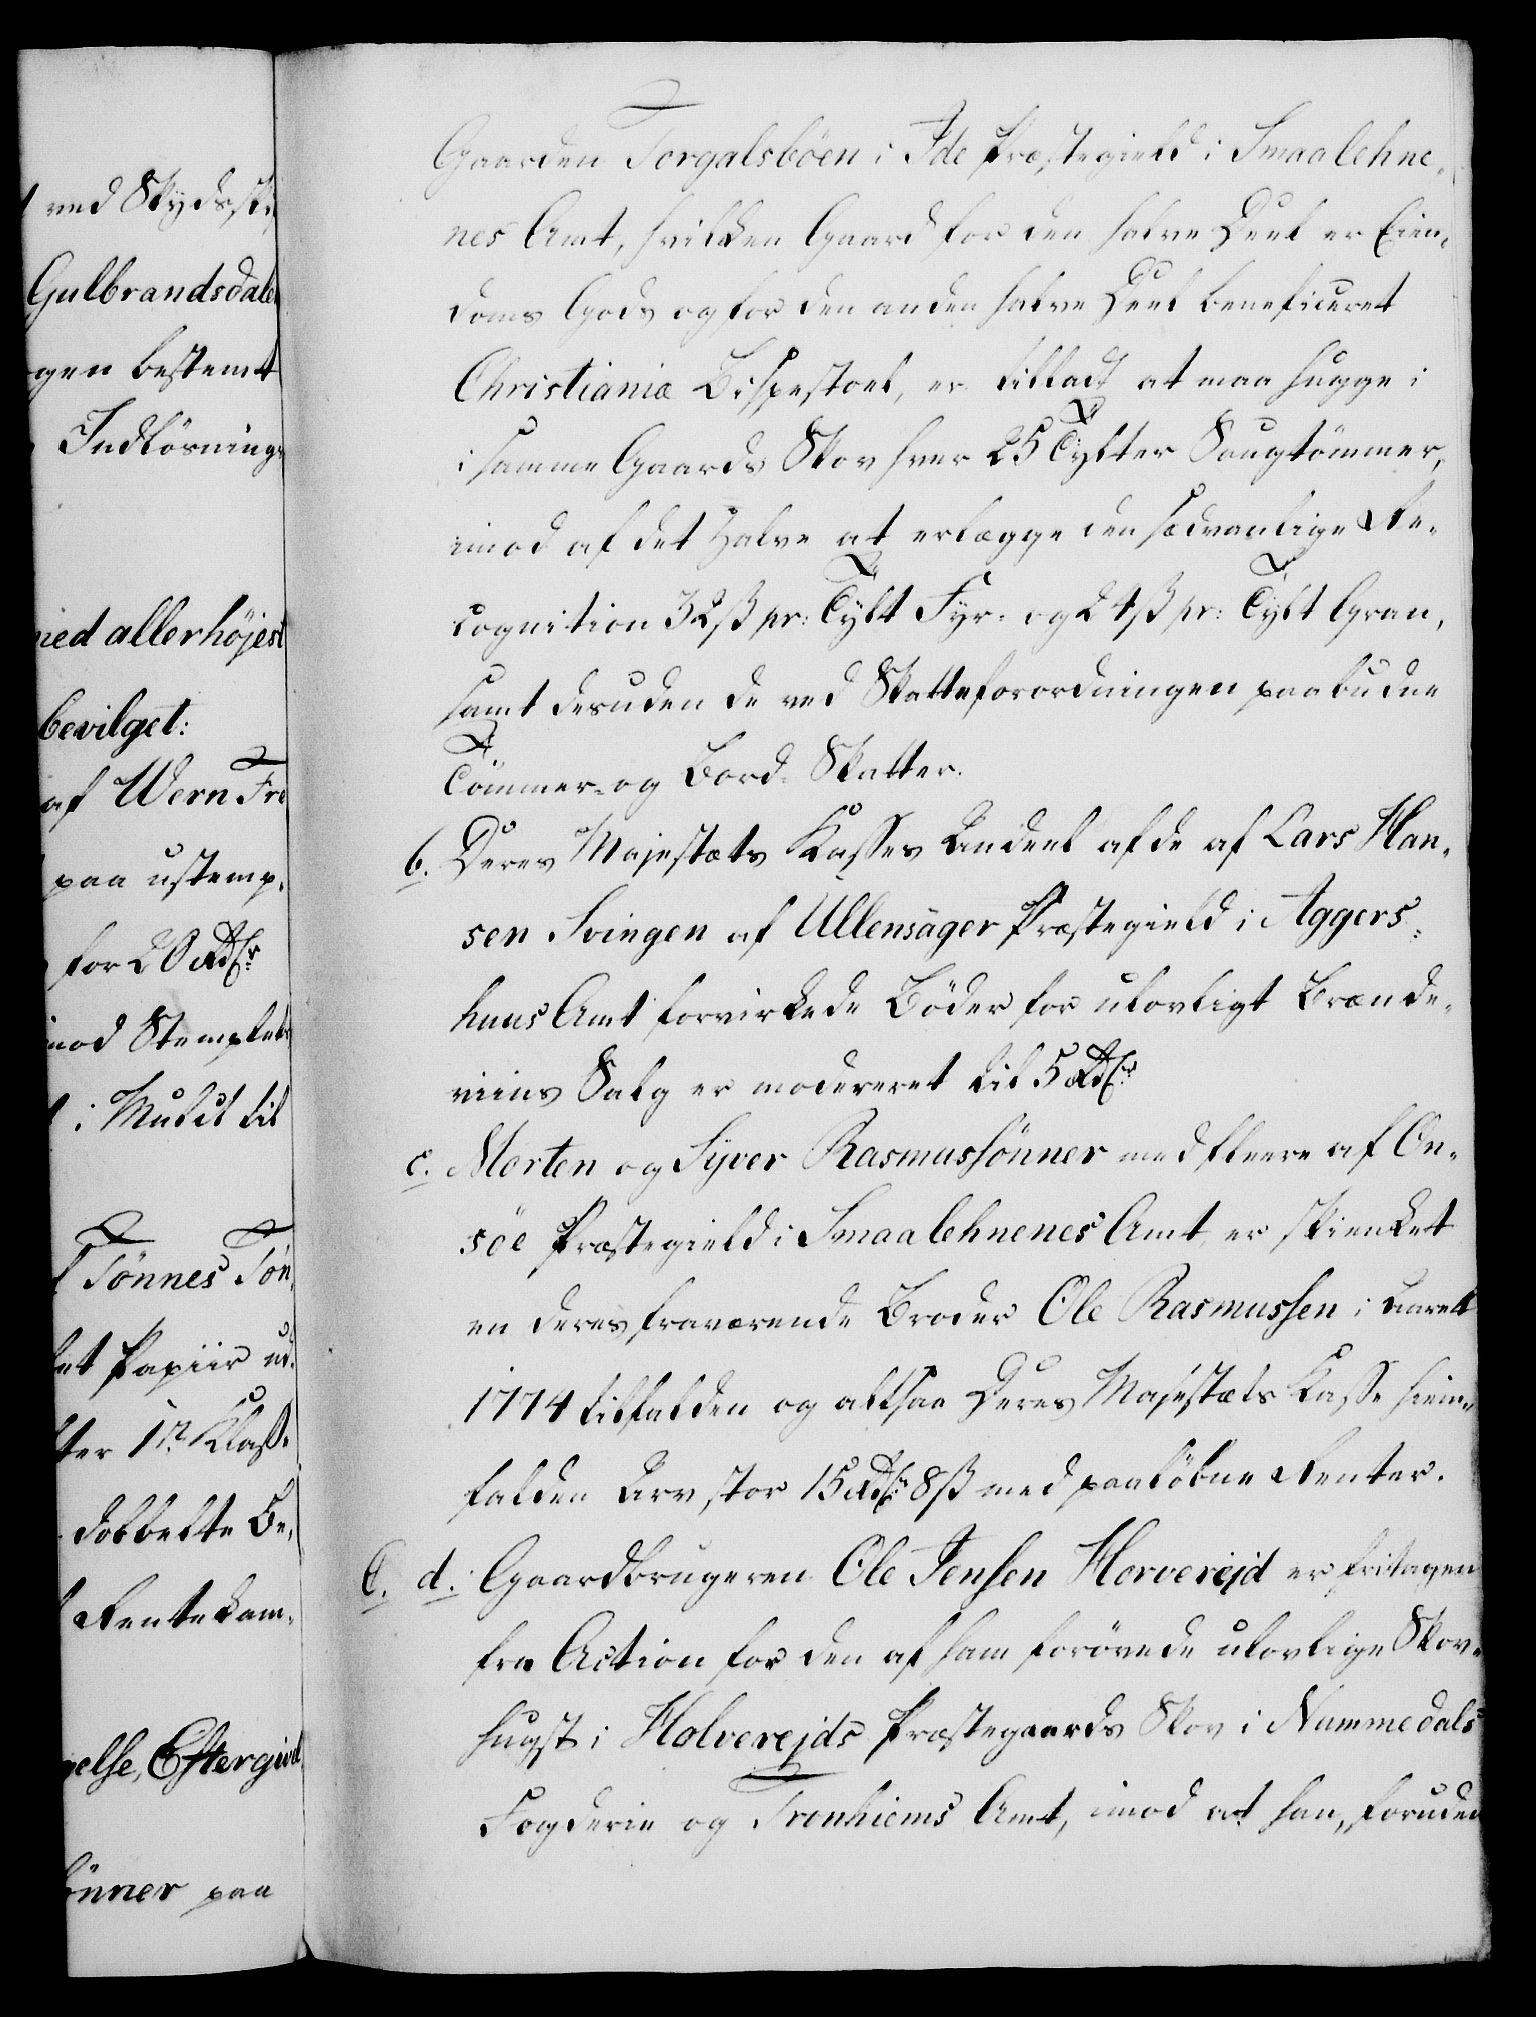 ved Skyds
Gulbrandsdale
gen bestemt
Indlösnings
med allerhöjest
bevilget:
af Wern Fre
paa ustemp¬
for 20 Rdlr
imod Stemplets
i Mulct til
Tönnes Tön¬
let Papiir ud¬
ter 1ste Klasse
dobbelte Be¬
Rentekam¬
else, Eftergivel
önner paa
Gaarden Torgalsböen i Ide Præstegield i Smaalehne¬
nes Amt, hvilken Gaard for den halve Deel er Eien¬
doms Gods og for den anden halve Deel beneficeret
Christianiæ Bispestoel, er tilladt at maa hugge i
i samme Gaards Skov hver 25 Tylter Saugtömmer,
imod af det Halve at erlægge den sædvanlige Re¬
cognition 32 ß pr: Tylt Fyr- og 24 ß pr: Tylt Gran,
samt desuden de ved Skatteforordningen paabudne
Tömmer- og Bord-Skatter.
b. Deres Majestæts Kasses Andeel af de af Lars Han¬
sen Svingen af Ullensager Præstegield i Aggers¬
huus Amt forvirkede Böder for ulovligt Brænde¬
viins Salg er modereret til 5 Rdlr
c. Morten og Syver Rasmussönner med fleere af On¬
söe Præstegield i Smaalehnenes Amt er skienket
en deres fraværende Broder Ole Rasmussen i Aaret
1774 tilfalden og altsaa Deres Majestæts Kasse hiem¬
falden Arv, stor 15 Rdlr 8 ß med paalöbne Renter.
C. d. Gaardbrugeren Ole Jensen Horverejd er fritagen
fra Action for den af ham forövede ulovlige Skov¬
hugst i Holverejds Præstegaards Skov i Nummedals
Fogderie og Tronhiems Amt, imod at han, foruden